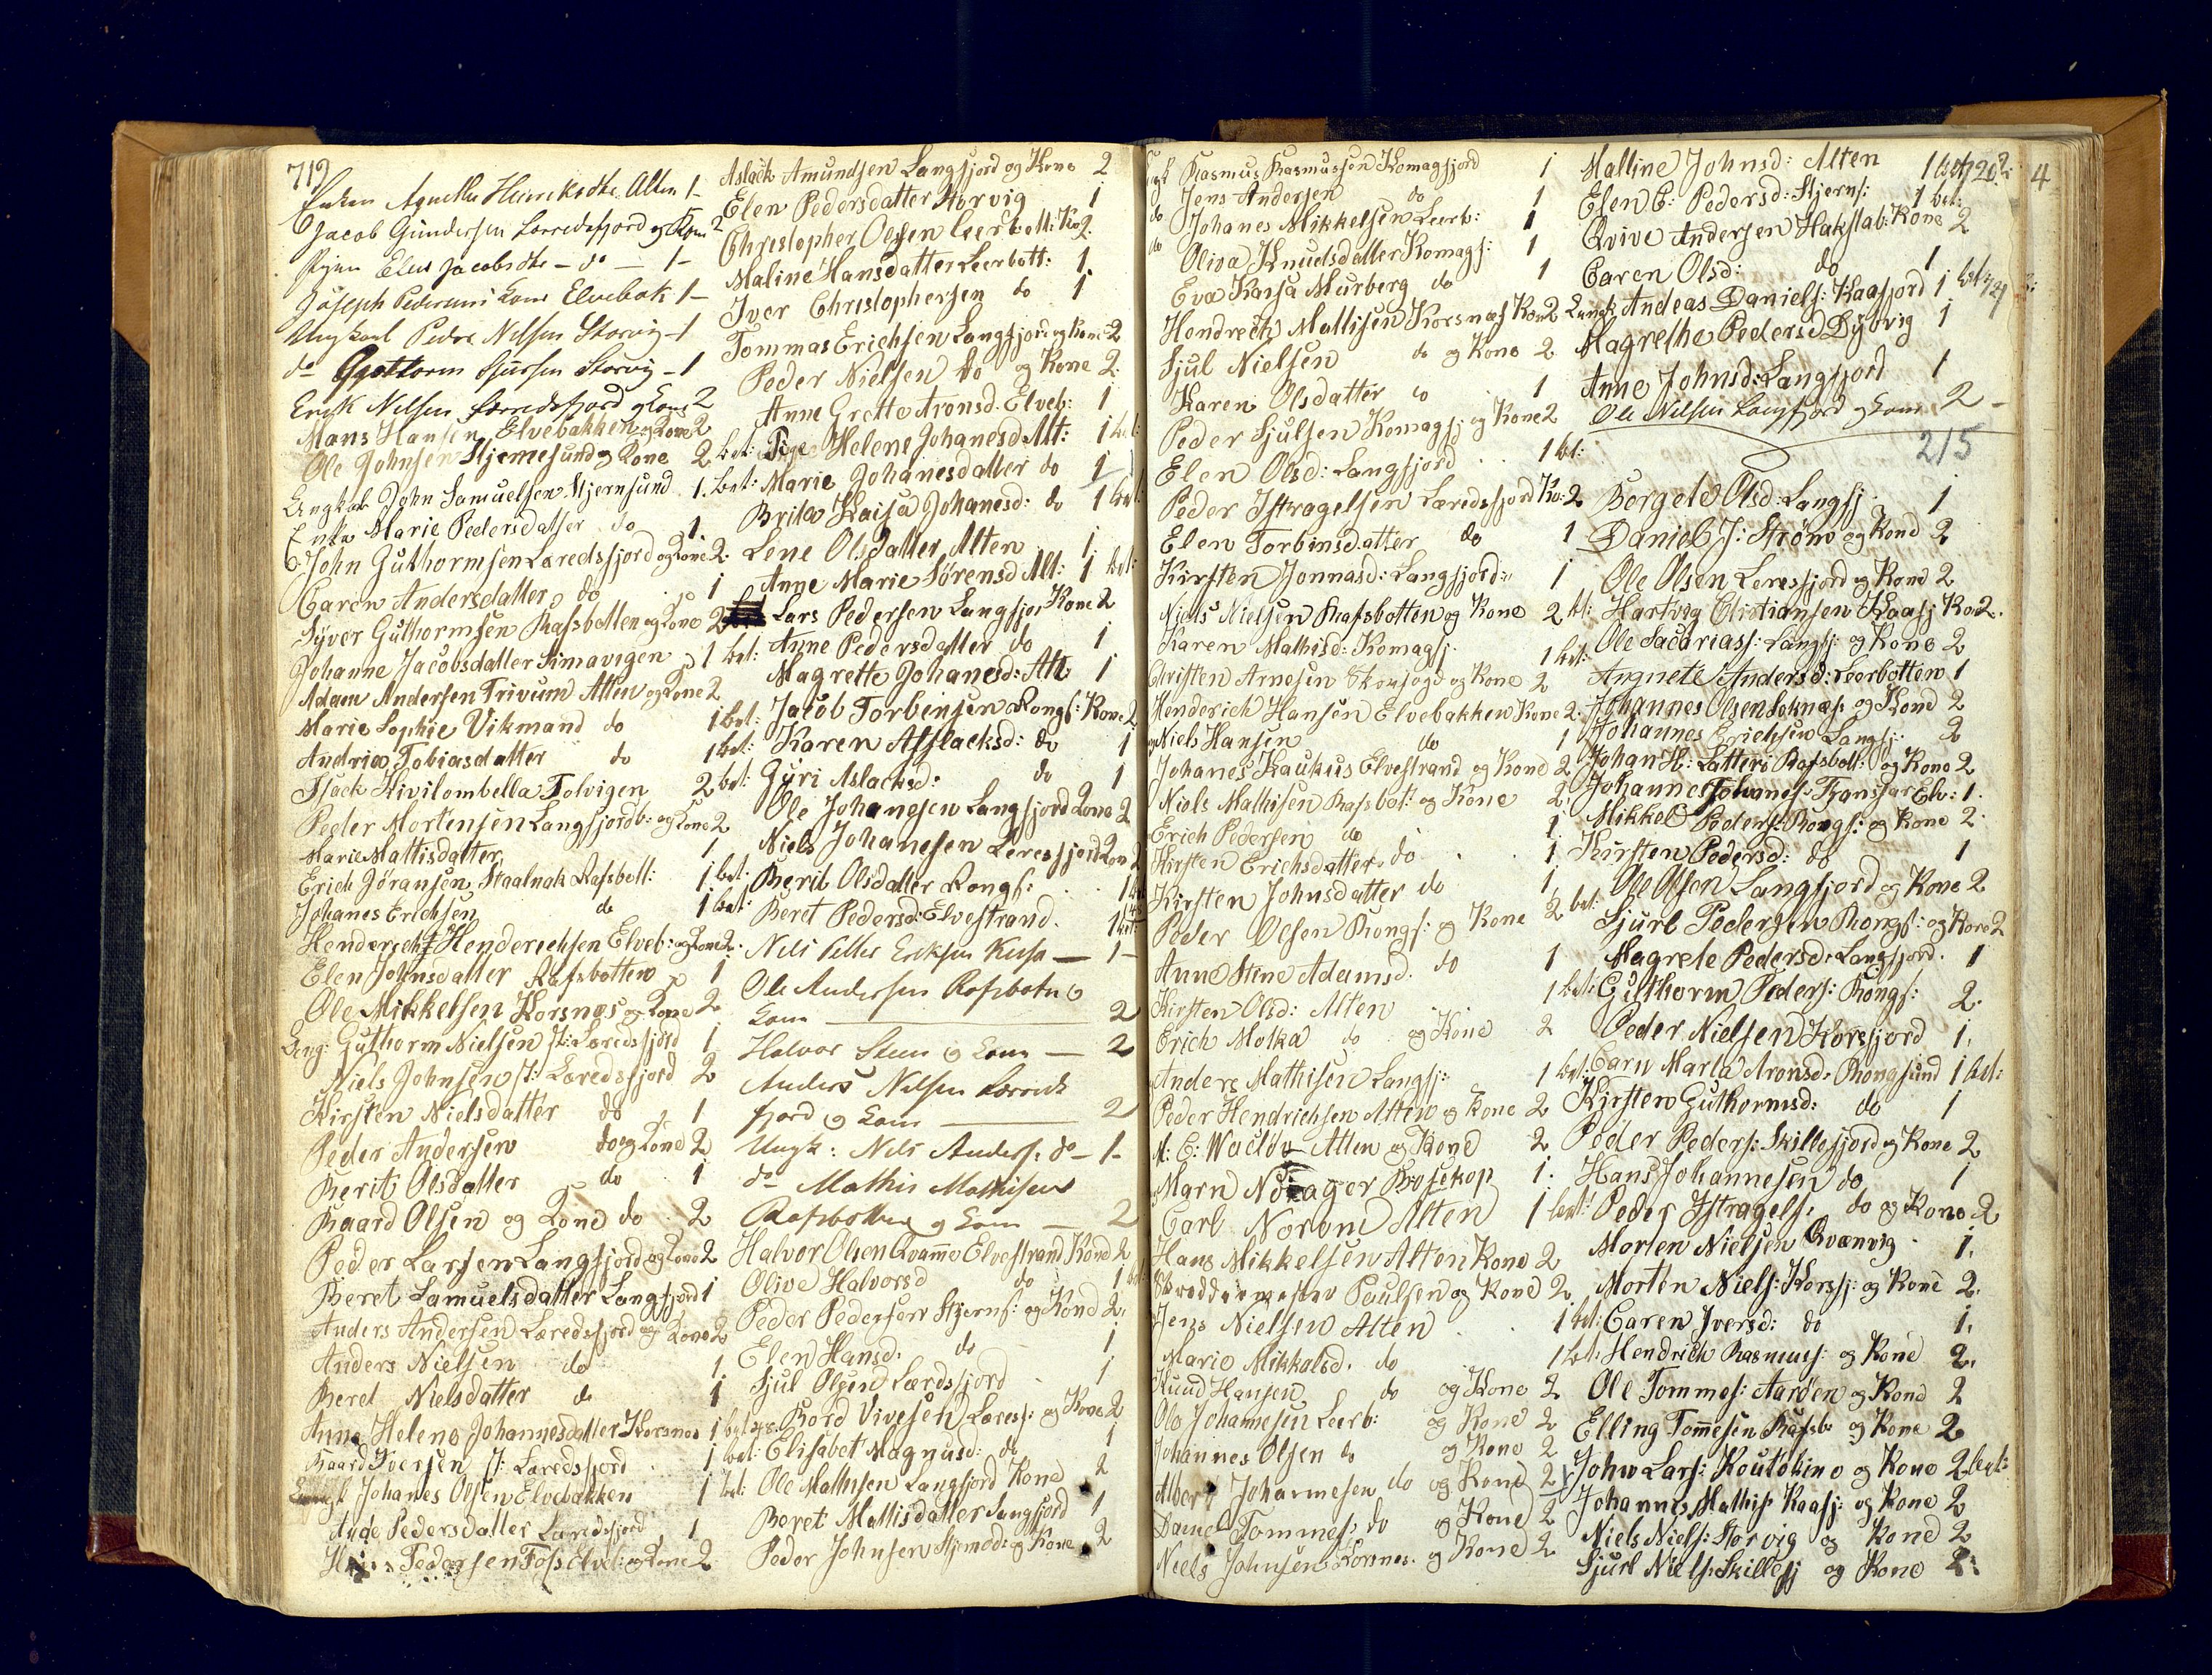 713
Enken Agnethe Henriksdtr. Alten 1-
Jacob Gundersen Lerredsfjord og Kone 2
Pigen Elen Jacobsdtr - do - 1-
Joseph Pedersens Kone Elvebak 1-
Ungkarl Peder Nilsen Storvig - 1
do Guttorm Sjursen Storvig - 1
Erik Nilsen Lerredsfjord og Kone 2
Mons Hansen Elvebakken og Kone 2
Ole Johnsen Stjernesund og Kone 2 bet:
Ungkal John Samuelsen Stjernsund 1. bet:
Enke Marie Pedersdatter do 1.
John Guthormsen Læredsfjord og Kone 2.
Caren Andersdatter do 1
Syver Guthormsen Rafsbotten og Kone 2
Johanne Jacobsdatter Simavigen 1 bet:
Adam Andersen Trivum Alten og Kone 2
Marie Sophie Vikmand do 1 bet:
Andria Tobiasdatter do 1 bet:
Isack Kivilombella Tolvigen 2 bet:
Peder Mortensen Langfjordb: og Kone 2
Marie Mattisdatter 1
Erich Jöransen Staalnak Rafsbott: 1 bet:
Johanes Erichsen do 1 bet:
Henderich Henderichsen Elveb: og Kone 2.
Elen Johnsdatter Rafsbotten 1
Ole Mikkelsen Korsnes og Kone 2
Ung: Guthorm Nielsen st: Læredsfjord 1
Niels Johnsen st: Læredsfjord 2
Kirsten Nielsdatter do 1
Peder Andersen do og Kone 2
Berit Olsdatter do 1
Baard Olsen og Kone do 2
Peder Larsen Langfjord og Kone 2
Beret Samuelsdatter Langfjord 1
Anders Andersen Læredsfjord og Kone 2
Anders Nielsen do 1
Beret Nielsdatter do 1
Anne Helene Johannesdatter Korsnes 1 bet
Baard Iversen st: Læredsfjord 1 bet:
Johanes Olsen Elvebakken 1 bet:
Pedersdatter Læredsfjord 1
Pedersen Foss Elveb: og Kone 2
Aslack Amundsen Langfjord og Kone 2
Elen Pedersdatter Storvig 1
Christopher Olsen Leerbott: Ko 2.
Maline Hansdatter Leerbott: 1
Iver Christophersen do 1
Tommas Erichsen Langfjord og Kone 2
Peder Nielsen do og Kone 2.
Anne Grette Aronsd. Elveb: 1
Pige Helene Johanesd. Alt: 1 bet:
Marie Johanesdatter do 1
Brita Kaisa Johanesd: do 1 bet
Lene Olsdatter Alten 1
Anne Marie Sörensd: Alt: 1 bet:
Lars Pedersen Langfjor Kone 2
Anne Pedersdatter do 1
Magrette Johanesd: Alt 1
Jacob Torbinsen Rongs: Kone 2
Karen Asslacksd: do 1
Gjuri Aslacksd: do 1
Ole Johanesen Langfjord Kone 2
Niels Johanesen Leresfjord Kon 2
Berit Olsdatter Rongs: 1
Beret Pedersd: Elvestrand. 1 bet:
Nils Peter Eriksen Kissa - 1-
Ole Andersen Rafsbotn og
Kone - 2
Halvor Steen og Kone - 2
Anders Nilsen Lerreds
fjord og Kone - 2
Ungk: Nils Anders. do - 1-
do Mathis Mathisen
Rafsbotten og Kone - 2
Halvor Olsen Qvamme Elvestrand Kone 2
Olive Halvorsd do 1 bet
Peder Pedersen Stjerns: og Kone 2.
Elen Hansd. do 1
Sjul Olsen Lærdsfjord 1
Bord Vivesen Læresf: og Kone 2
Elisabet Magnusd: do 1
Ole Mathisen Langfjord Kone 2
Beret Mattisdatter Langfjord 1
Peder Johnsen Stjernød: og Kone 2
Rasmus Rasmussen Komagfjord 1
do Jens Andersen do 1
do Johanes Mikkelsen Leerb: 1
Oliva Knuelsdatter Komagf: 1
Eva Kaisa Murberg do 1
Hendrech Mattisen Korsnæs Kone 2
Sjul Nielsen do og Kone 2
Karen Olsdatter do 1
Peder Sjulsen Komagfj og Kone 2
Elen Olsd: Langfjord 1 bet:
Peder Istragelsen Læredsfjord Ko: 2
Elen Torbinsdatter do 1
Kirsten Jonnasd: Langfjord 1
Niels Nielsen Rafsbotten og Kone 2 bt:
Karen Mathisd: Komagfj. 1 bet:
Christen Arnesen Skovfogd og Kone 2
Henderich Hansen Elvebakken Kone 2.
Niels Hansen do 1
Johanes Kaukus Elvestrand og Kone 2
Niels Mathisen Rafsbot: og Kone 2.
Erich Pedersen do 1
Kirsten Erichsdatter do 1
Kirsten Johnsdatter do 1
Peder Olsen Rongs: og Kone 2 bet:
Anne Stine Adamsd. do 1
Kirsten Olsd: Alten 1 bet:
Erich Molka do og Kone 2
Anders Mathisen Langfj: 1 bet:
Peder Hendrichsen Alten og Kone 2
M: E: Waclöv Alten og Kone 2
Marn Norager Bosekop 1.
Carl Norum Alten 1 bet:
Hans Mikkelsen Alten Kone 2
Skreddermester Poulsen og Kone 2
Jens Nielsen Alten 1 bet:
Marie Mikkelsd. do 1 bet:
Knud Hansen do og Kone 2
Ole Johannesen Leerb: og Kone 2
Johannes Olsen do og Kone 2
Albert Johannesen do og Kone 2
Daniel Tommes: do og Kone 2
Niels Johnsen Korsnes. og Kone 2
Malline Johnsd: Alten 1 bet
Elen C: Pedersd: Stjerns: 1 bet:
Qvive Andersen Hakstab: Kone 2
Caren Olsd: do 1
Ungk Andeas Daniels: Kaafjord 1 bet
Magrethe Pedersd Dybvig 1
Anne Johnsd: Langfjord 1
Ole Nilsen Langfjord og Kone 2-
215
Borgele Olsd: Langfj 1
Daniel J: Strøm og Kone 2
Ole Olsen Leresfjord og Kone 2
Hartvig Christiansen Kaafj Kon 2.
Ole Sacariass: Langfj: og Kone 2
Angnete Andersd: Leerbotten 1
Johannes Olsen Leknæs og Kone 2
Johannes Erichsen Langfj: 2
Johan H: Latteri Rafsbott: og Kone 2
Johannes Johanes. Transfar Elv: 1.
Mikkel Peders: Rongs: og Kone 2.
Kirsten Pedersd: do 1
Ole Olsen Langfjord og Kone 2
Sjurl Pedersen Rongs: og Kone 2
Magrele Pedersd. Langfjord. 1
Guthorm Peders: Rongs: 2.
Peder Nielsen Korsfjord 1.
Carn Marta Aronsd. Rongsund 1 bet:
Kirsten Guthormsd: do 1
Peder Peders: Skillefjord og Kone 2
Hans Johannesen do 1
Peder Istragels. do og Kone 2
Morten Nielsen Qvænvig 1.
Morten Niels: Korsfj: og Kone 2.
Caren Iversd: do 1.
Hendrich Rasmuss: og Kone 2.
Ole Tommes: Aarøen og Kone 2
Elling Tommesen Rafsb. og Kone 2
John Lars: Koutokino og Kone 2 bet:
Johannes Mathis Kaafj: og Kone 2
Niels Niels: Storvig og Kone 2
Sjurl Niels: Skillefj og Kone 2.
4